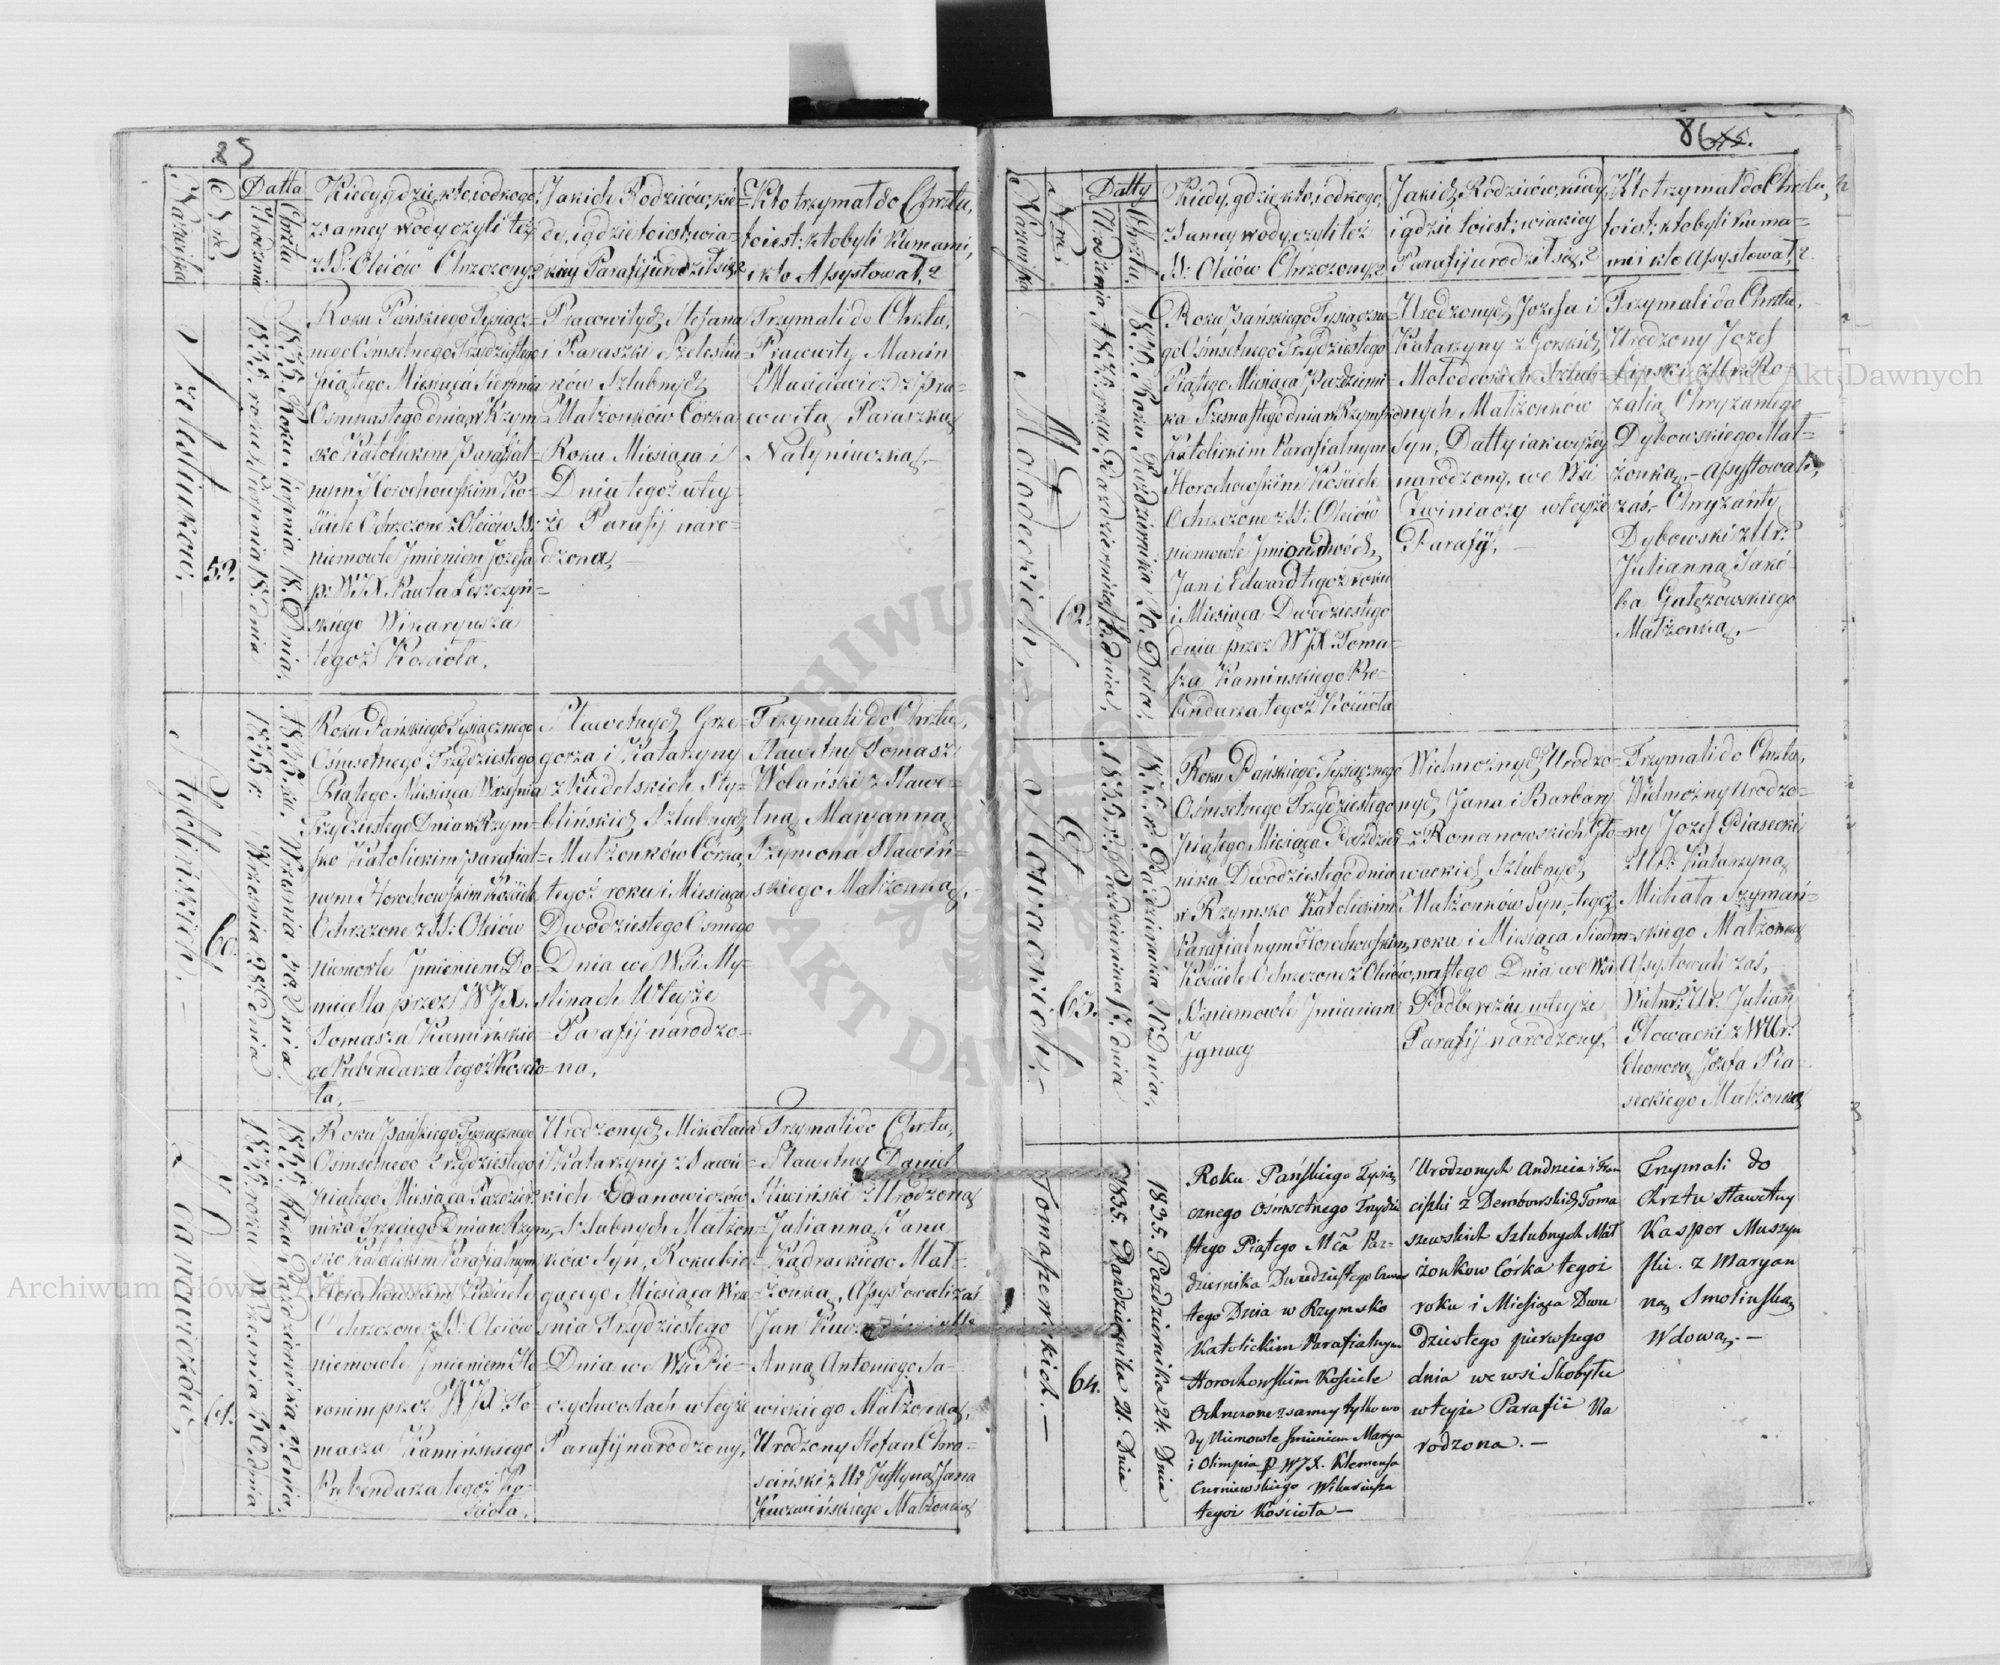 85
Nazwiska
Nra
Datta
Urodzenia
Chrztu
Kiedy, gdzie, kto, i od kogo,
z samej wody czyli też
z SS: Oleiów Chrzczony?
Jakich Rodziców, kie=
dy, i gdzie to iest: w ia=
kiey Parafij urodził się?
Kto trzymał do Chrztu,
to iest: kto byli Kumami,
i kto Assystował?
Szelestiuków.
59.
1835. roku Sierpnia 18. dnia
1835. Roku Sierpnia 18. Dnia,
Roku Pańskiego Tysiącz=
nego Ośmsetnego Trzydziestego
piątego Miesiąca Sierpnia
Osmnastego dnia w Rzym=
sko Katolickim parafial=
nym Horochowskim Ko=
ściele Ochrzczone z Oleiów SS:
niemowle Jmieniem Jozefa
p: WJX. Pawła Leszczyń=
skiego Wikaryusza
tegoż Kościoła.
Pracowitych Stefana
i Paraszki Szelestiu=
ków Szlubnych
Małżonków Córka
Roku Miesiąca i
Dnia tegoż w tey=
że Parafij naro=
dzona,
Trzymali do Chrztu,
Pracowity Marcin
Maciejewicz z pra=
cowitą Paraszką
Nałyniuczką.
Stublińskich.
60.
1835 r. Września 28. Dnia
1835. r. Września 30 Dnia
Roku Pańskiego Tysiącznego
Ośmsetnego Trzydziestego
Piątego Miesiąca Września
Trzydziestego Dnia w Rzym=
sko Katolickim parafial=
nym Horochowskim Kościele
Ochrzczone z SS: Oleiów
niemowle Jmieniem Do=
micella przez WJX.
Tomasza Kamińskie=
go Prebendarza tegoż Koscio=
ła.
Sławetnych Grze=
gorza i Katarzyny
z Kudelskich Stu=
blińskich Szlubnych
Małżonków Córka,
tegoż roku i Miesiąca
Dwódziestego Osmego
Dnia we Wsi My=
slinach w teyże
Parafij narodzo=
na,
Trzymali do Chrztu,
Sławetny Tomasz
Wolański z Sławe=
tną Maryanną
Szymona Sławiń=
skiego Małżonką.
Zdanowiczów,
61.
1835. roku Września 30. dnia
1835. Roku Października 3. dnia
Roku Pańskiego Tysiącznego
Ośmsetnego Trzydziestego
piątego Miesiąca Paździer=
nika Trzeciego Dnia w Rzym=
sko Katolickim Parafialnym
Horochowskim Kościele
Ochrzczone z SS: Oleiów
niemowle Jmieniem Hie=
ronim przez WJX To=
masza Kamińskiego
Prebendarza tegoż Ko=
scioła.
Urodzonych Mikołaia
i Katarzyny z Sawic=
kich Zdanowiczów
Szlubnych Małżon=
ków Syn, Roku bie=
gącego Miesiąca Wrze=
śnia Trzydziestego
Dnia we Wsi Pie=
czychwostach w teyże
Parafij narodzony,
Trzymali do Chrztu,
Sławetny Daniel
Sliwiński z Urodzoną
Julianną, Jana
Kądrackiego Mał=
żonką, Assystowali zaś
Jan
Anną Antoniego Sa=
wickiego Małżonką,
Urodzony Stefan Chro=
sciński z Ur Justyną Jana
Kuczmińskiego Małżonką
86
Nazwiska
Nra
Datty
Urodzenia
Chrztu
Kiedy, gdzie, kto, i od kogo,
z samey wody, czyli też
SS: Oleiów Chrzczony?
Jakich Rodziców, kiedy
i gdzie to iest: w iakiey
Parafij urodził się?
Kto trzymał do Chrztu,
to iest: kto byli Kuma=
mi i kto Assystował?
Mołodeckich,
62.
1835. roku Października 16. dnia,
1835. Roku Października 20. Dnia,
Roku Pańskiego Tysiączne=
go Ośmsetnego Trzydziestego
Piątego Miesiąca Październi=
ka Szesnastego dnia w Rzymsko
Katolickim Parafialnym
Horochowskim Kościele
Ochrzczone z SS: Oleiów
niemowle Jmion dwóch
Jan i Edward tegoż roku
i Miesiąca Dwódziestego
dnia przez WJX. Toma=
sza Kamińskiego Pre=
bendarza tegoż Kościoła
Urodzonych Jozefa i
Katarzyny z Gorskich
Mołodeckich Szlub=
nych Małżonków
Syn, Datty iak wyżey
narodzony, we Wsi
Zwiniaczy w teyże
Parafij,
Trzymali do Chrztu,
Urodzony Jozef
z Ur. Ro=
zalią Chryzantego
Dybowskiego Mał=
żonką, Assystowali
zaś, Chryzanty
Dybowski z Ur:
Julianną Jakó=
ba Gałęzowskiego
Małżonką.
Głowackich,
63.
1835. r. Października 17. dnia
1835. r. Października 20 Dnia,
Roku Pańskiego Tysiącznego
Ośmsetnego Trzydziestego
piątego Miesiąca Paździer=
nika Dwódziestego dnia
w Rzymsko Katolickim
Parafialnym Horochowskim
Kościele Ochrzczone z Oleiów
SS: niemowle Jmieniem
Jgnacy
Wielmożnych Urodzo=
nych Jana i Barbary
z Romanowskich Gło=
wackich Szlubnych
Małżonków Syn, tegoż
roku i Miesiąca Siedm=
nastego Dnia we Wsi
Podberezia w teyże
Parafij narodzony,
Trzymali do Chrztu,
Wielmożny Urodzo=
ny Jozef Piasecki
z Ur: Katarzyną
Michała Szymań=
skiego Małżonką
Assystowali zaś,
Wielm: Ur: Julian
Głowacki z WUr:
Eleonorą Józefa Pia=
seckiego Małżonką
Tomaszewskich.
64.
1835. Października 21. Dnia
1835. Października 24. Dnia
Roku Pańskiego Tysią
cznego Ośmsetnego Trzydzie
stego Piątego Mca Paź=
dziernika Dwudziestego Czwar
tego Dnia w Rzymsko
Katolickim Parafialnym
Horochowskim Kościele
Ochrzczone z samey tylko wo
dy Niemowle Jmieniem Marya
i Olimpia p. WJX. Klemensa
Czerniewskiego Wikariusza
tegoż Kościoła
Urodzonych Andrzeia i Fran
ciszki z Dembowskich Toma
szewskich Szlubnych Mał
żonkow Córka tegoż
roku i Miesiąca Dwu
dziestego pierwszego
dnia we wsi Skobyłce
w teyże Parafii Na
rodzona.
Trzymali do
Chrztu Sławetny
Kasper Muszyń
ski z Maryan
ną Smolińską
Wdową.
Archiwum Główne Akt Dawnych
Archiwum Główne Akt Dawnych
ARCHIWUM GŁÓWNE
AKT DAWNYCH